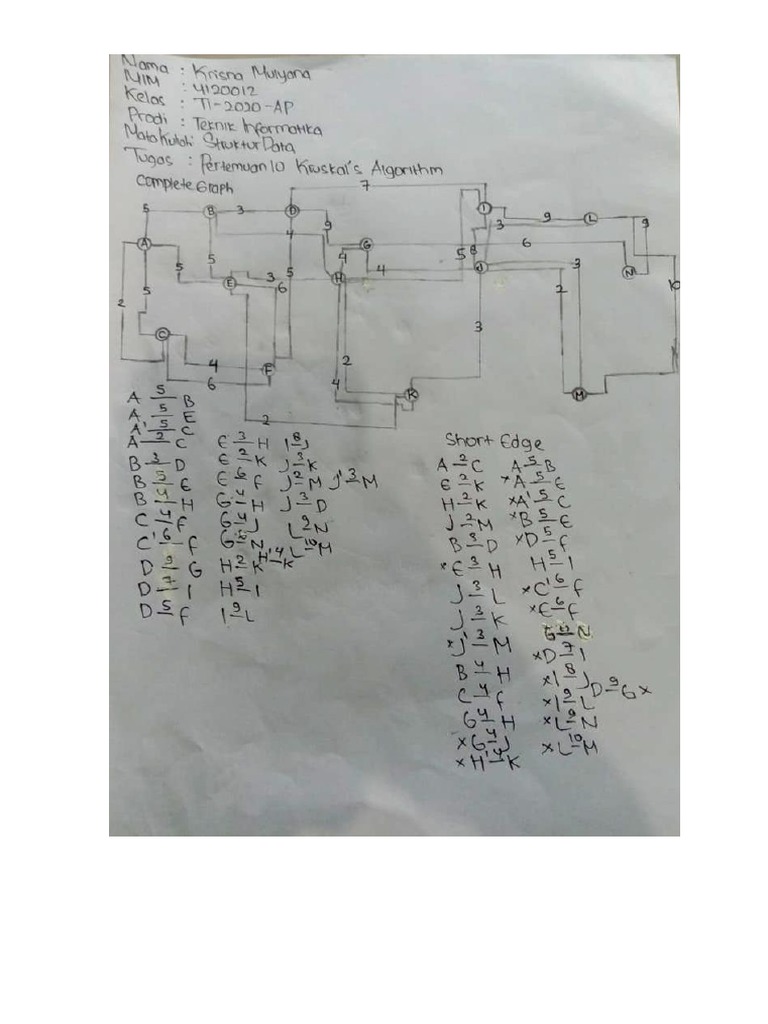 Nama : Krisna Mulyana
NIM : 4120012
Kelas : TI-2020-AP
Prodi : Teknik Informatika
Mata Kuliah: Struktur Data
Tugas : Pertemuan 10 Kruskal's Algorithm
Complete Graph
7
5 B 3 D I 9 L
9 3 9
4 G 6
A 5 8
5 5 5 4 4 J 3 N
E 3 H 10
6
5 2
2 3
C 2
4 F 4 K M
6
2
A 5 B
A 5 E
A' 5 C
A 2 C
B 3 D
B 5 E
B 4 H
C 4 F
C' 6 F
D 9 G
D 7 I
D 5 F
E 3 H
E 2 K
E 6 F
G 4 H
G 4 J
G 6 N
H 2 K
H' 4 K
H 5 I
I 9 L
I 8 J
J 3 K
J 2 M
J' 3 M
J 3 D
L 9 N
L 10 M
Short Edge
A 2 C
E 2 K
H 2 K
J 2 M
B 3 D
* E 3 H
J 3 L
J 3 K
* J' 3 M
B 4 H
C 4 F
G 4 H
× G 4 J
× H' 4 K
A 5 B
* A 5 E
* A' 5 C
* B 5 E
× D 5 F
H 5 I
× C' 6 F
× E 6 F
G 6 N
× D 7 I
× I 8 J
D 9 G ×
× I 9 L
× L 9 N
× L 10 M